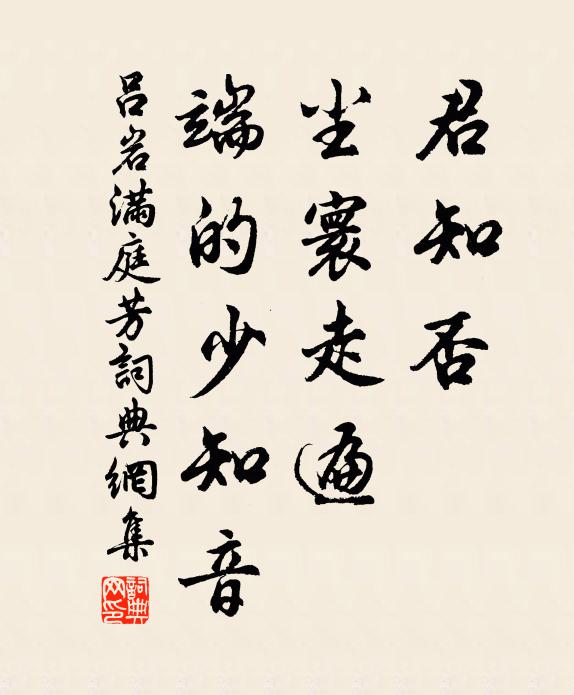 君知否
尘寰走遍
端的少知音
吕岩满庭芳詞典網集
詞典网印